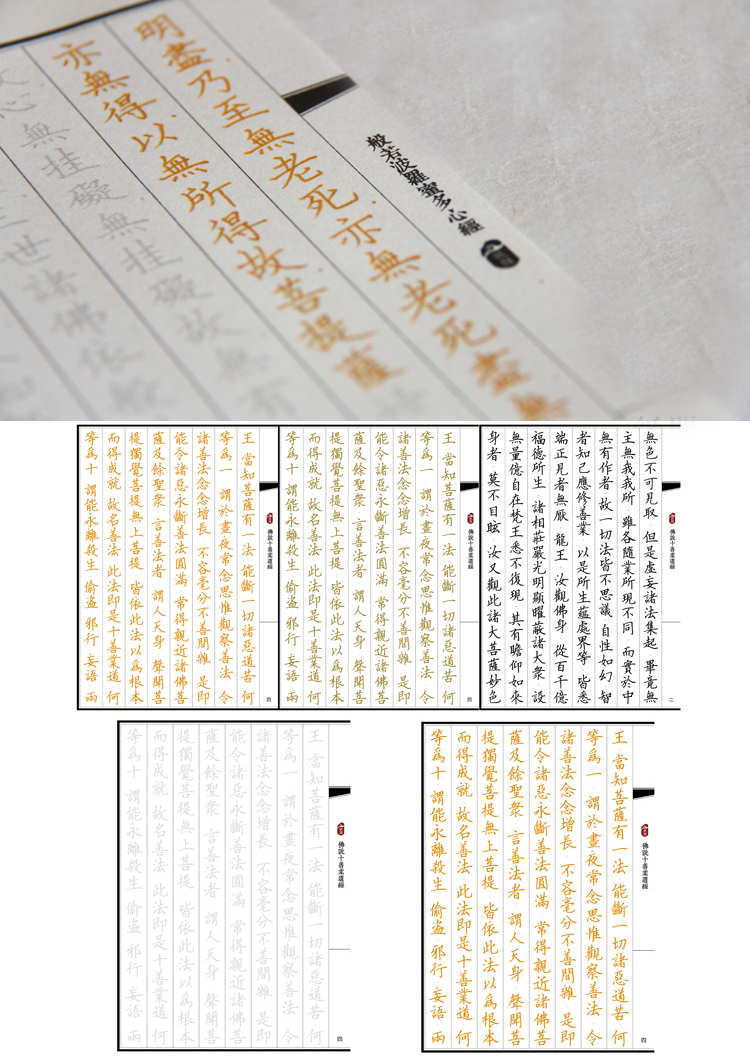 般若波羅蜜多心經
明盡乃至無老死亦無老死盡無
亦無得以無所得故菩提薩
心無挂礙無挂礙故無有
世諸佛依般
佛說十善業道經
二
無色不可見取 但是虛妄諸法集起 畢竟無
主無我我所 雖各隨業所現不同 而實於中
無有作者 故一切法皆不思議 自性如幻 智
者知已應修善業 以是所生蘊處界等 皆悉
端正見者無厭 龍王 汝觀佛身 從百千億
福德所生 諸相莊嚴光明顯曜蔽諸大衆 設
無量億自在梵王悉不復現 其有瞻仰如來
身者 莫不目眩 汝又觀此諸大菩薩妙色
佛說十善業道經
四
王 當知菩薩有一法 能斷一切諸惡道苦 何
等爲一 謂於晝夜常念思惟觀察善法 令
諸善法念念增長 不容毫分不善間雜 是即
能令諸惡永斷善法圓滿 常得親近諸佛菩
薩及餘聖衆 言善法者 謂人天身 聲聞菩
提獨覺菩提無上菩提 皆依此法以爲根本
而得成就 故名善法 此法即是十善業道 何
等爲十 謂能永離殺生 偷盜 邪行 妄語 兩
佛說十善業道經
四
王 當知菩薩有一法 能斷一切諸惡道苦 何
等爲一 謂於晝夜常念思惟觀察善法 令
諸善法念念增長 不容毫分不善間雜 是即
能令諸惡永斷善法圓滿 常得親近諸佛菩
薩及餘聖衆 言善法者 謂人天身 聲聞菩
提獨覺菩提無上菩提 皆依此法以爲根本
而得成就 故名善法 此法即是十善業道 何
等爲十 謂能永離殺生 偷盜 邪行 妄語 兩
佛說十善業道經
四
王 當知菩薩有一法 能斷一切諸惡道苦 何
等爲一 謂於晝夜常念思惟觀察善法 令
諸善法念念增長 不容毫分不善間雜 是即
能令諸惡永斷善法圓滿 常得親近諸佛菩
薩及餘聖衆 言善法者 謂人天身 聲聞菩
提獨覺菩提無上菩提 皆依此法以爲根本
而得成就 故名善法 此法即是十善業道 何
等爲十 謂能永離殺生 偷盜 邪行 妄語 兩
佛說十善業道經
四
王 當知菩薩有一法 能斷一切諸惡道苦 何
等爲一 謂於晝夜常念思惟觀察善法 令
諸善法念念增長 不容毫分不善間雜 是即
能令諸惡永斷善法圓滿 常得親近諸佛菩
薩及餘聖衆 言善法者 謂人天身 聲聞菩
提獨覺菩提無上菩提 皆依此法以爲根本
而得成就 故名善法 此法即是十善業道 何
等爲十 謂能永離殺生 偷盜 邪行 妄語 兩